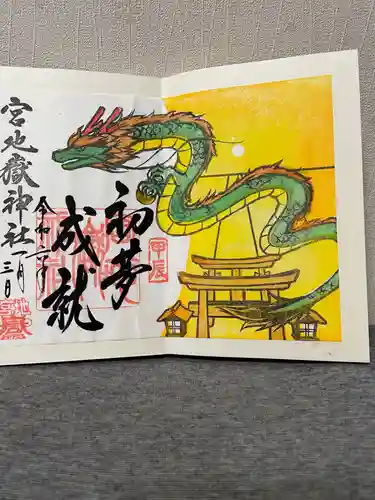 初夢
成就
甲辰
令和六年
一月三日
宮地嶽神社